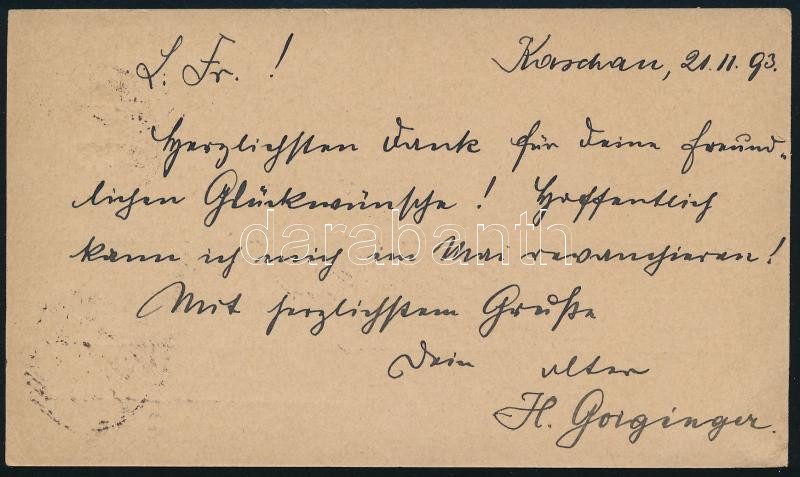 L. Fr. !
Kaschau, 21.11.93.
Herzlichsten Dank für Deine freund-
lichen Glückwünsche! Hoffentlich
kann ich mich im Mai revanchieren!
darabanth.com
Mit herzlichstem Gruße
Dein alter
H. Goiginger.